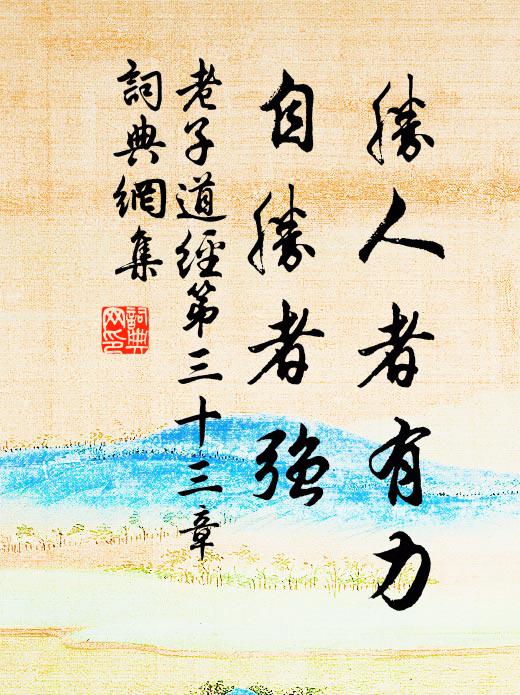 勝人者有力
自勝者強
老子道經第三十三章
詞典網集
詞典网印